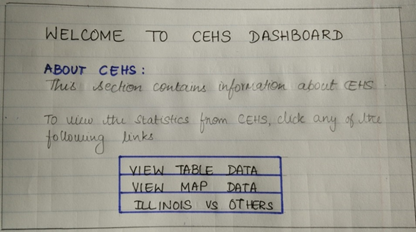 WELCOME TO CEHS DASHBOARD
ABOUT CEHS:
This section contains information about CEHS
To view the statistics from CEHS, click any of the
following links
VIEW TABLE DATA
VIEW MAP DATA
ILLINOIS VS OTHERS